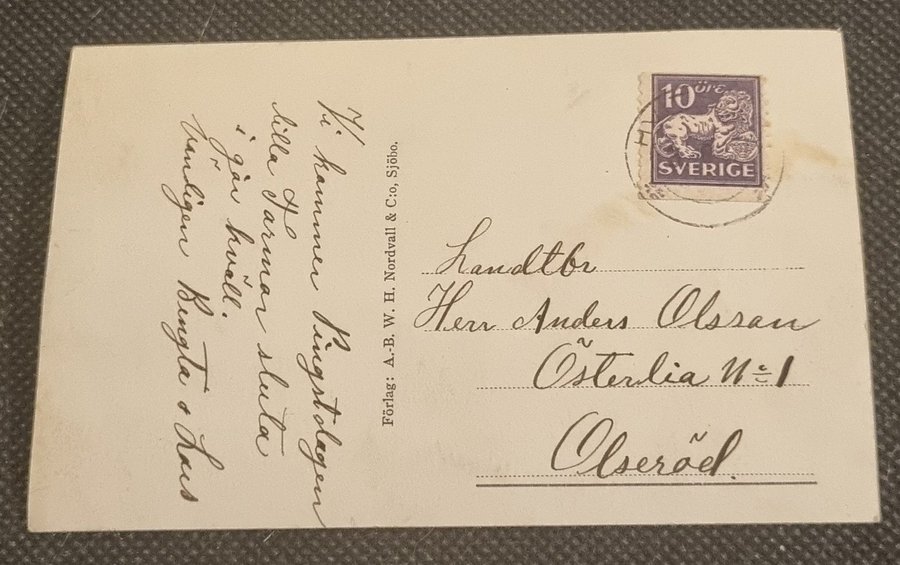 Vi kommer Pingstdagen
lilla farmor sluta
i går kväll.
Vänligen Bengta o Lars
Förlag: A.-B. W. H. Nordvall & C:o, Sjöbo.
10 öre
SVERIGE
Landtbr
Herr Anders Olsson
Österlia No 1
Olseröd.